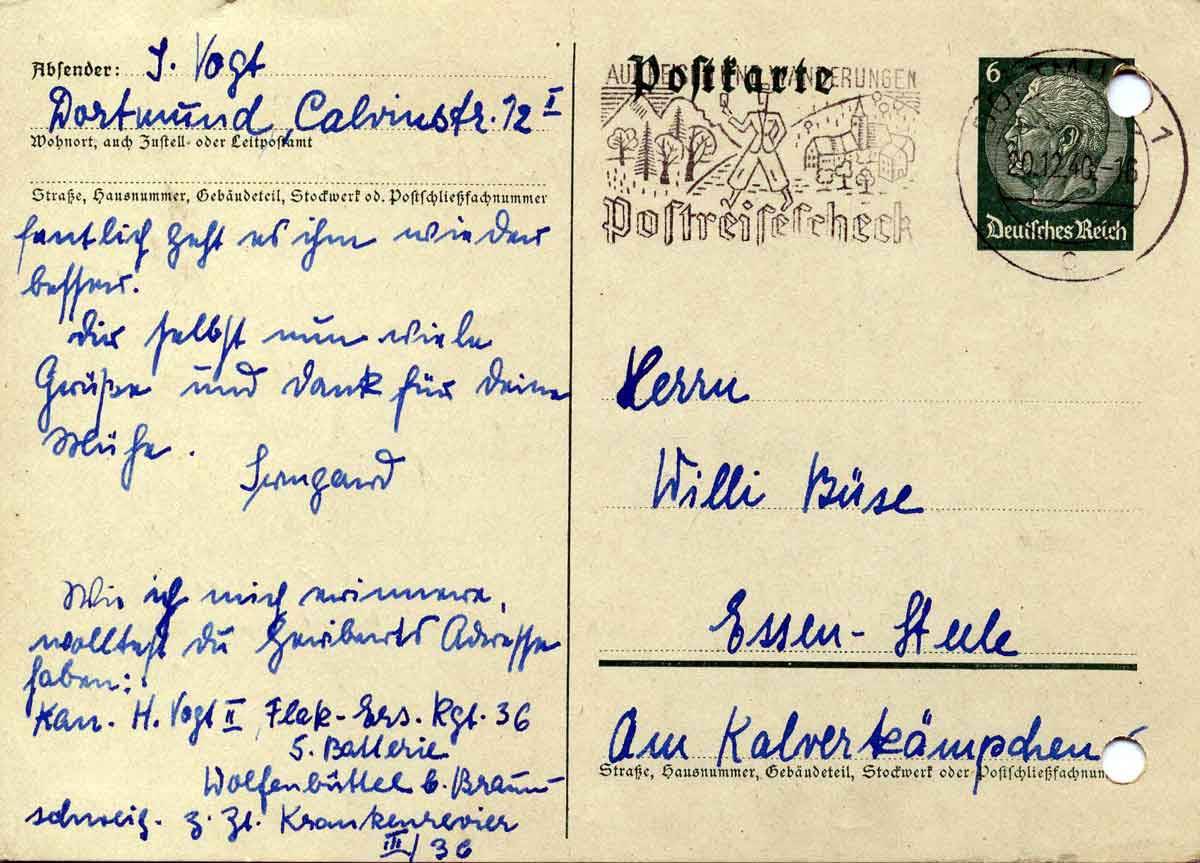 Absender: I. Vogt
Dortmund, Calvinstr. 12 I
Wohnort, auch Zustell- oder Leitpostamt
Straße, Hausnummer, Gebäudeteil, Stockwerk od. Postschließfachnummer
fentlich geht es ihm wieder
besser.
Dir selbst nun viele
Grüße und Dank für Deine
Mühe.
Irmgard
Wie ich mich erinnere,
wolltest Du Heriberts Adresse
haben:
Kan. H. Vogt II, Flak-Ers. Rgt. 36
5. Batterie
Wolfenbüttel b. Braun-
schweig. z. Zt. Krankenrevier
III/36
Postkarte
AUF REISEN UND WANDERUNGEN
Postreisescheck
6
Deutsches Reich
DORTMUND 1
20.12.40.-16
c
Herrn
Willi Büse
Essen-Steele
Am Kalverkämpchen
Straße, Hausnummer, Gebäudeteil, Stockwerk oder Postschließfachnum